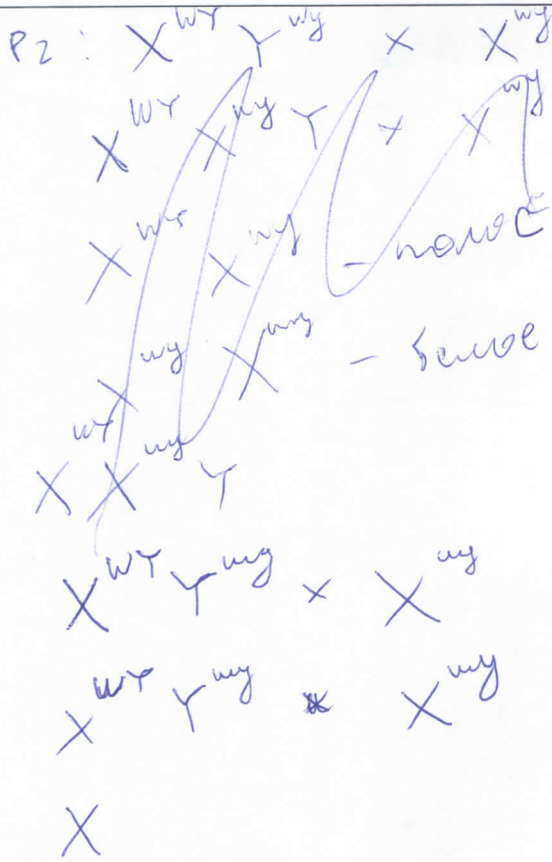 P2: X^WY Y^wy × X^wy
X^WY X^wy Y × X^wy
X^WY X^wy - полос
X^wy X^wy - белое
X^WY X^wy Y
X^WY Y^wy × X^wy
X^WY Y^wy × X^wy
X